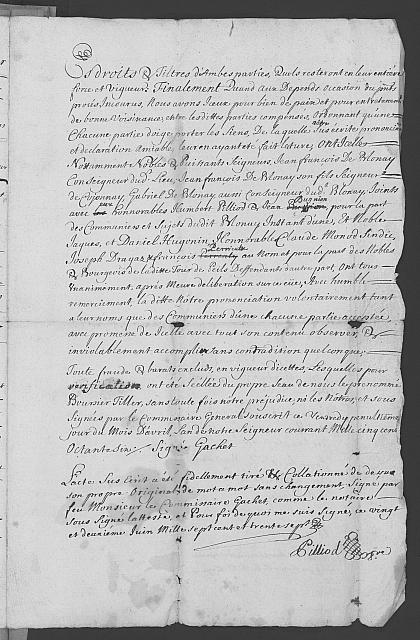 es droits & Tiltres d'Ambes parties, Quels resteront en leur entiere
force et Vigueur. Finalement Quand aux Depends occasion du pnt
procés Incourus, Nous avons sceux pour bien de paix et pour entretenement
de bonne Voisinance, entre lesdittes parties compensés, ordonnant qu'une
Chacune partie doige porter les Siens, De laquelle susescrite prononciation
et declaration Amiable, leur en ayant eté fait lature,
Nottamment Nobles & Puissants Seigneurs Jean françois De Blonay
ConSeigneur dud. Lieu, Jean françois De Blonay son fils Seigneur
de Gabriel De Blonay aussi ConSeigneur dud. Blonay Joints
avec eux honnorables humbert Pilliod & Jean Dugnion pour la part
des Communiers et Sujets dedit Blonay Instant d'une, Et Noble
Jaques, et Daniel Hugonin, Honnorable Claude Monod Sendic,
Joseph & françois au Nom et pour la part des Nobles
& Bourgeois de laditte Tour de Peils Deffendants d'autre part, ont tous
Unanimement, aprés Meure deliberation sur ce eüe, Avec humble
remerciement, la ditte Notre prononciation volontairement tant
a leur noms que des Communiers d'une chacune partie acceptée
avec promesse de Icelle avec tout son contenu observer, &
inviolablement accomplir sans contradition quelconque,
Toute fraude & barat exclud, en vigueur d'icettes, Lesquelles pour
verification, ont été Scellées du propre Seau de nous le prenommé
Boursier Tiller, sans toute fois notre préjudice ni les Notres, et sous
Signées par le Commissaire General souscrit ce Vendredy penultieme
jour du Mois D'avril, L'an de notre Seigneur courant Mille cinq cent
Octante Six. Signé Gachet
L'acte Sus Ecrit a été fidellement tiré & Collationné de dessus
son propre Original de mot a mot sans changement Signé par
feu Monsieur le Commissaire Gachet, comme le notaire
sous Signé l'atteste, et Pour foi de quoi me suis Signé, ce vingt
et deuxieme Juin Mille sept cent et trente sept
Pilliod